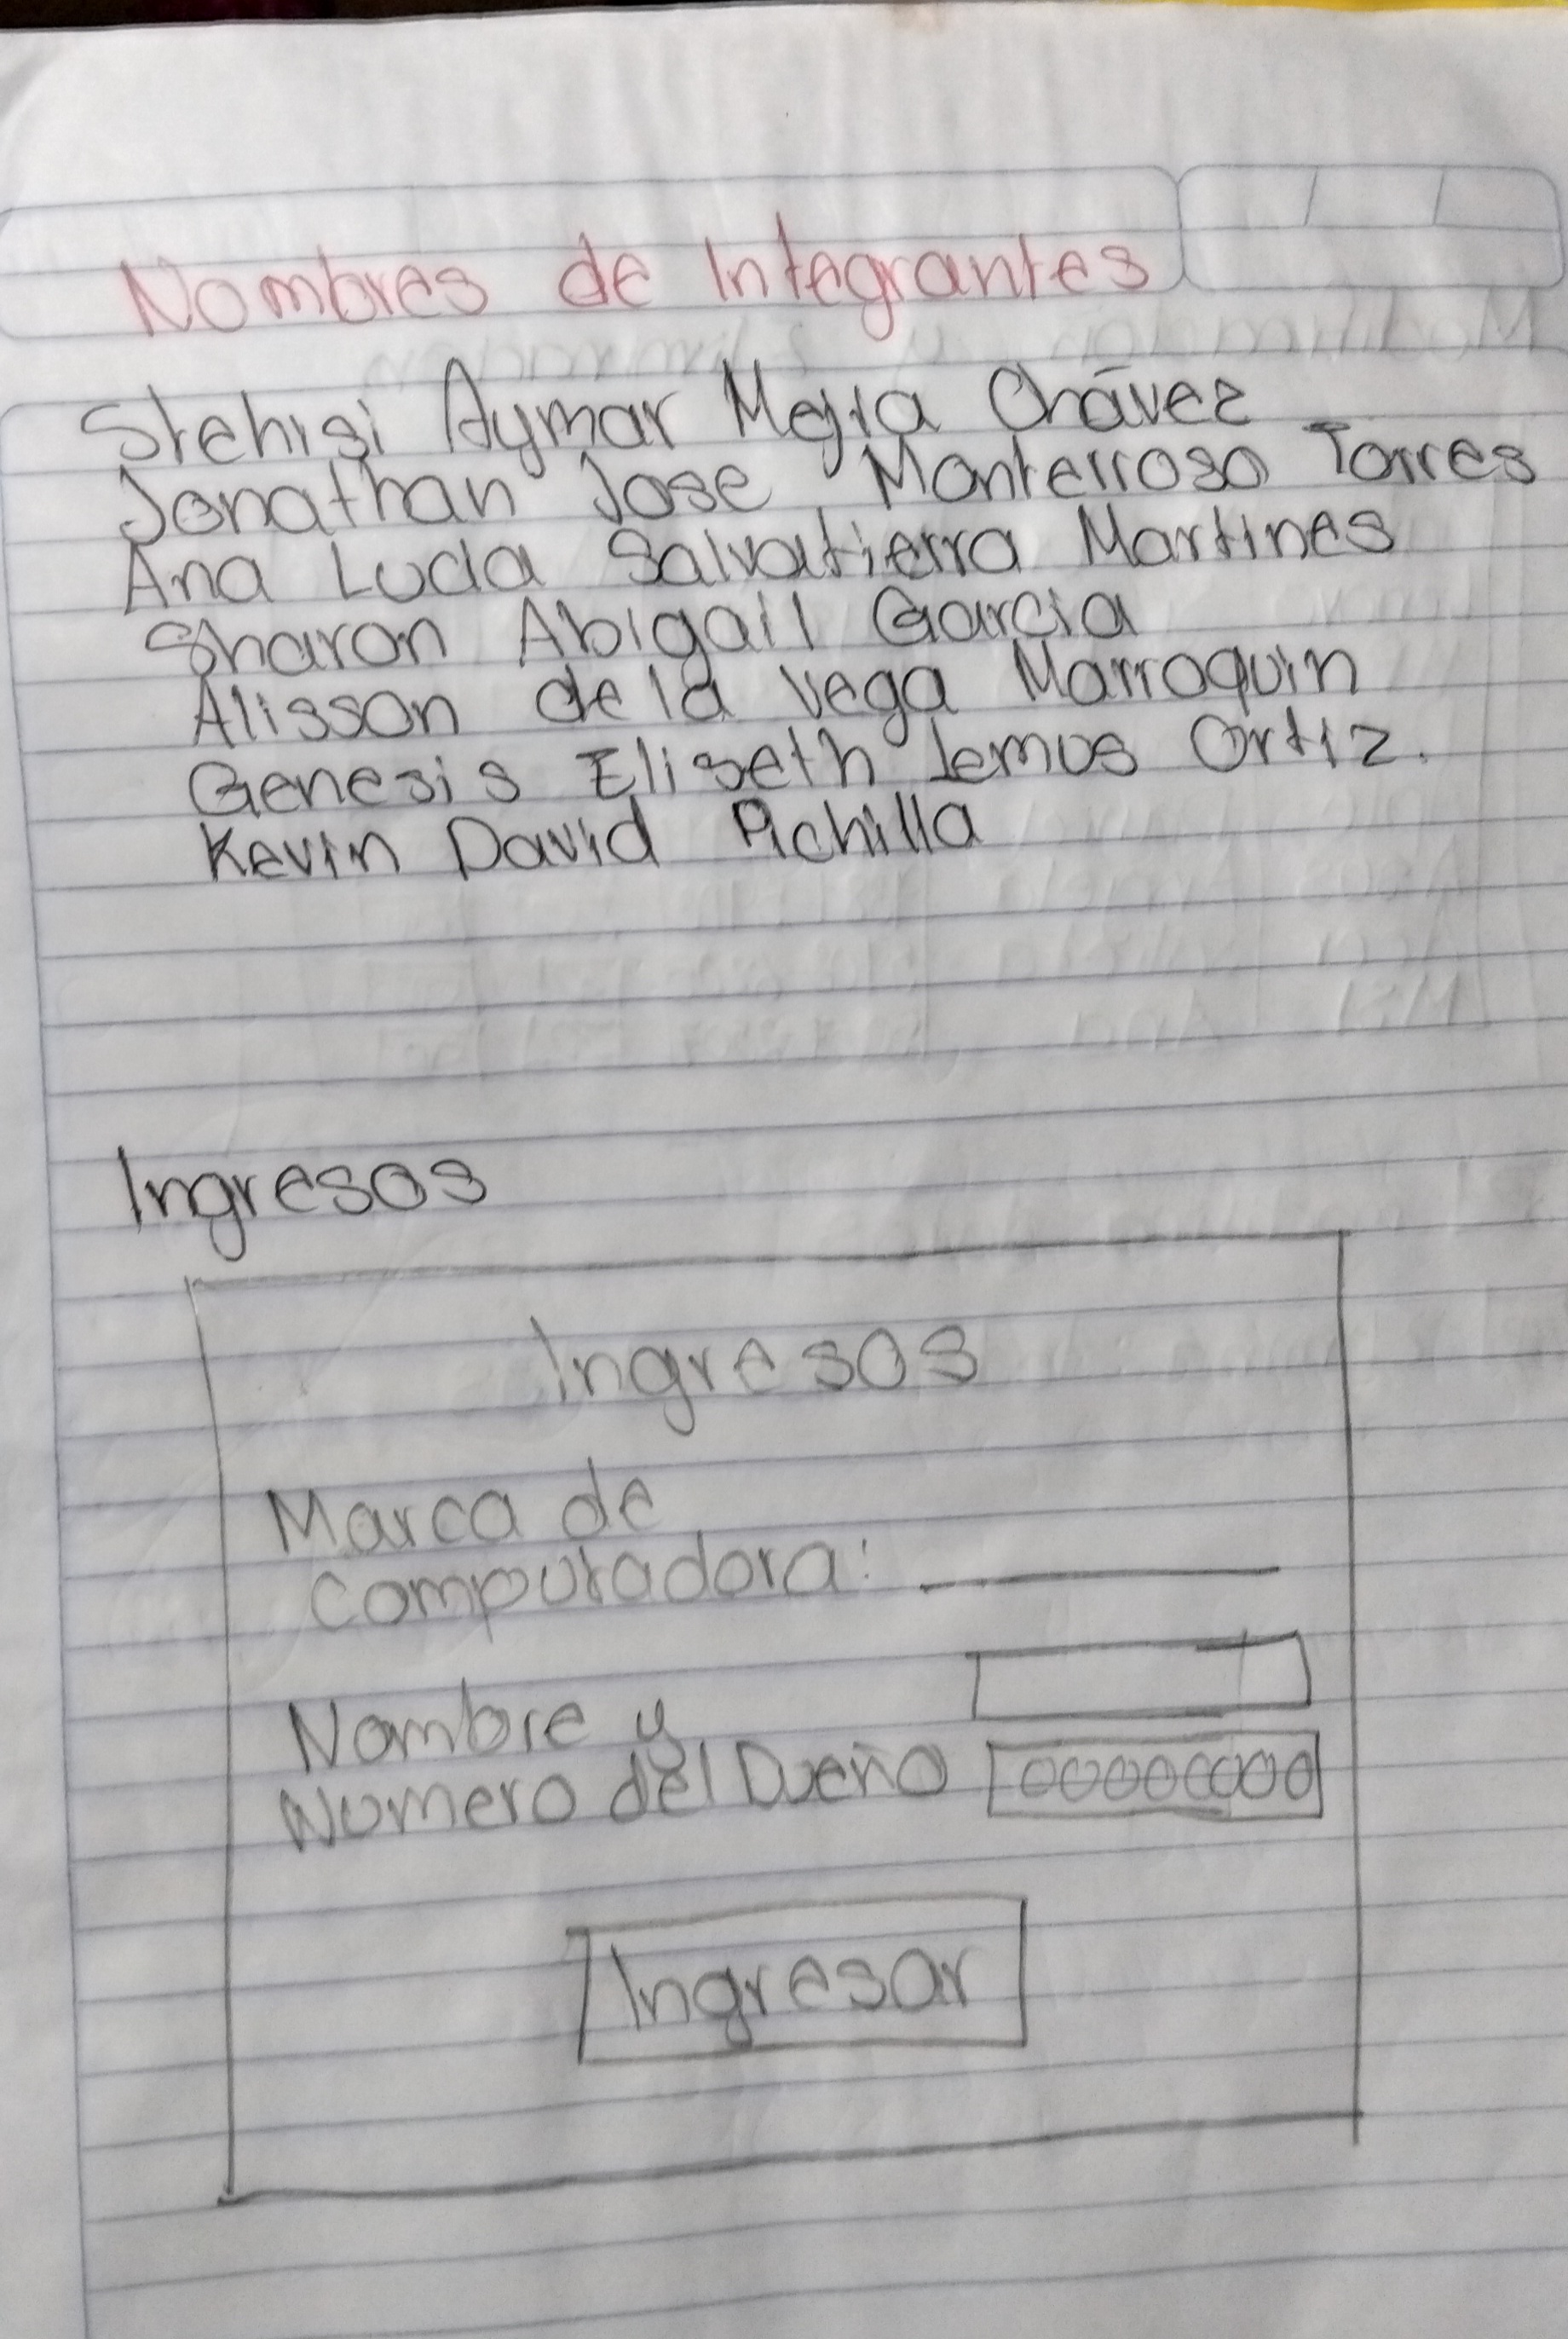 Nombres de Integrantes
Stehisi Aymar Mejia Chávez
Jonathan Jose Monterroso Torres
Ana Lucia Salvatierra Martines
Sharon Abigail Garcia
Alisson de la Vega Marroquin
Genesis Eliseth Lemus Ortiz.
Kevin David Pichilla
Ingresos
Ingresos
Marca de
Computadora:
Nombre y
Numero del Dueño 00000000
Ingresar